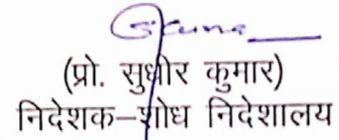 (प्रो. सुधीर कुमार)
निदेशक–शोध निदेशालय